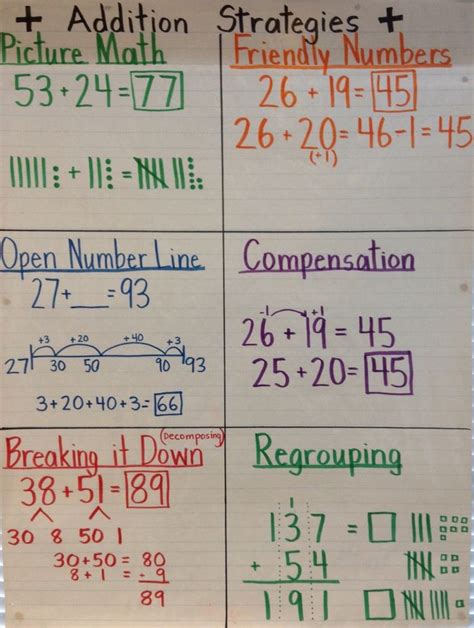 + Addition Strategies +
Picture Math
53+24=77
+ =
Friendly Numbers
26 + 19 = 45
26 + 20 = 46-1 = 45
(+1)
Open Number Line
27+__=93
+3 +20 +40 +3
27 30 50 90 93
3+20+40+3=66
Compensation
-1 +1
26 + 19 = 45
25 + 20 = 45
Breaking it Down (Decomposing)
38+51=89
30 8 50 1
30+50= 80
8 + 1 = 9
89
Regrouping
1
137 =
+ 54
191